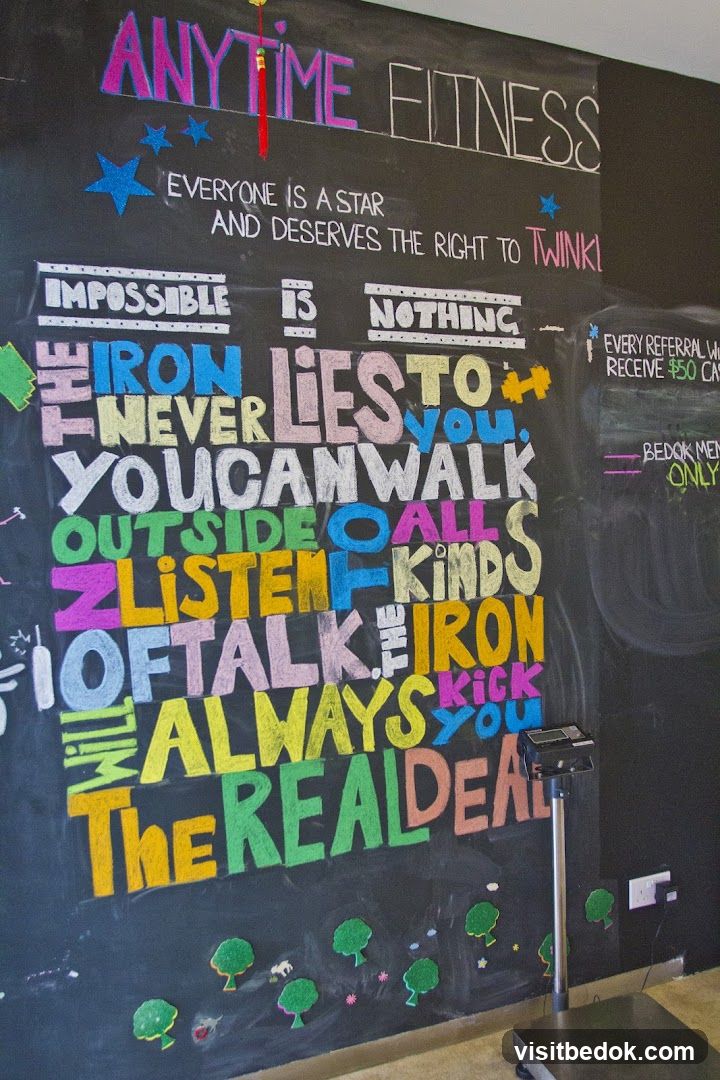 ANYTIME FITNESS
EVERYONE IS A STAR
AND DESERVES THE RIGHT TO TWINKL
IMPOSSIBLE IS NOTHING
THE IRON
NEVER LIES TO
YOU.
YOU CAN WALK
OUTSIDE
N LISTEN TO ALL
KINDS
OF TALK. THE IRON
WILL ALWAYS KICK
YOU
THE REAL DEAL
EVERY REFERRAL
RECEIVE $50
BEDOK
ONLY
visitbedok.com